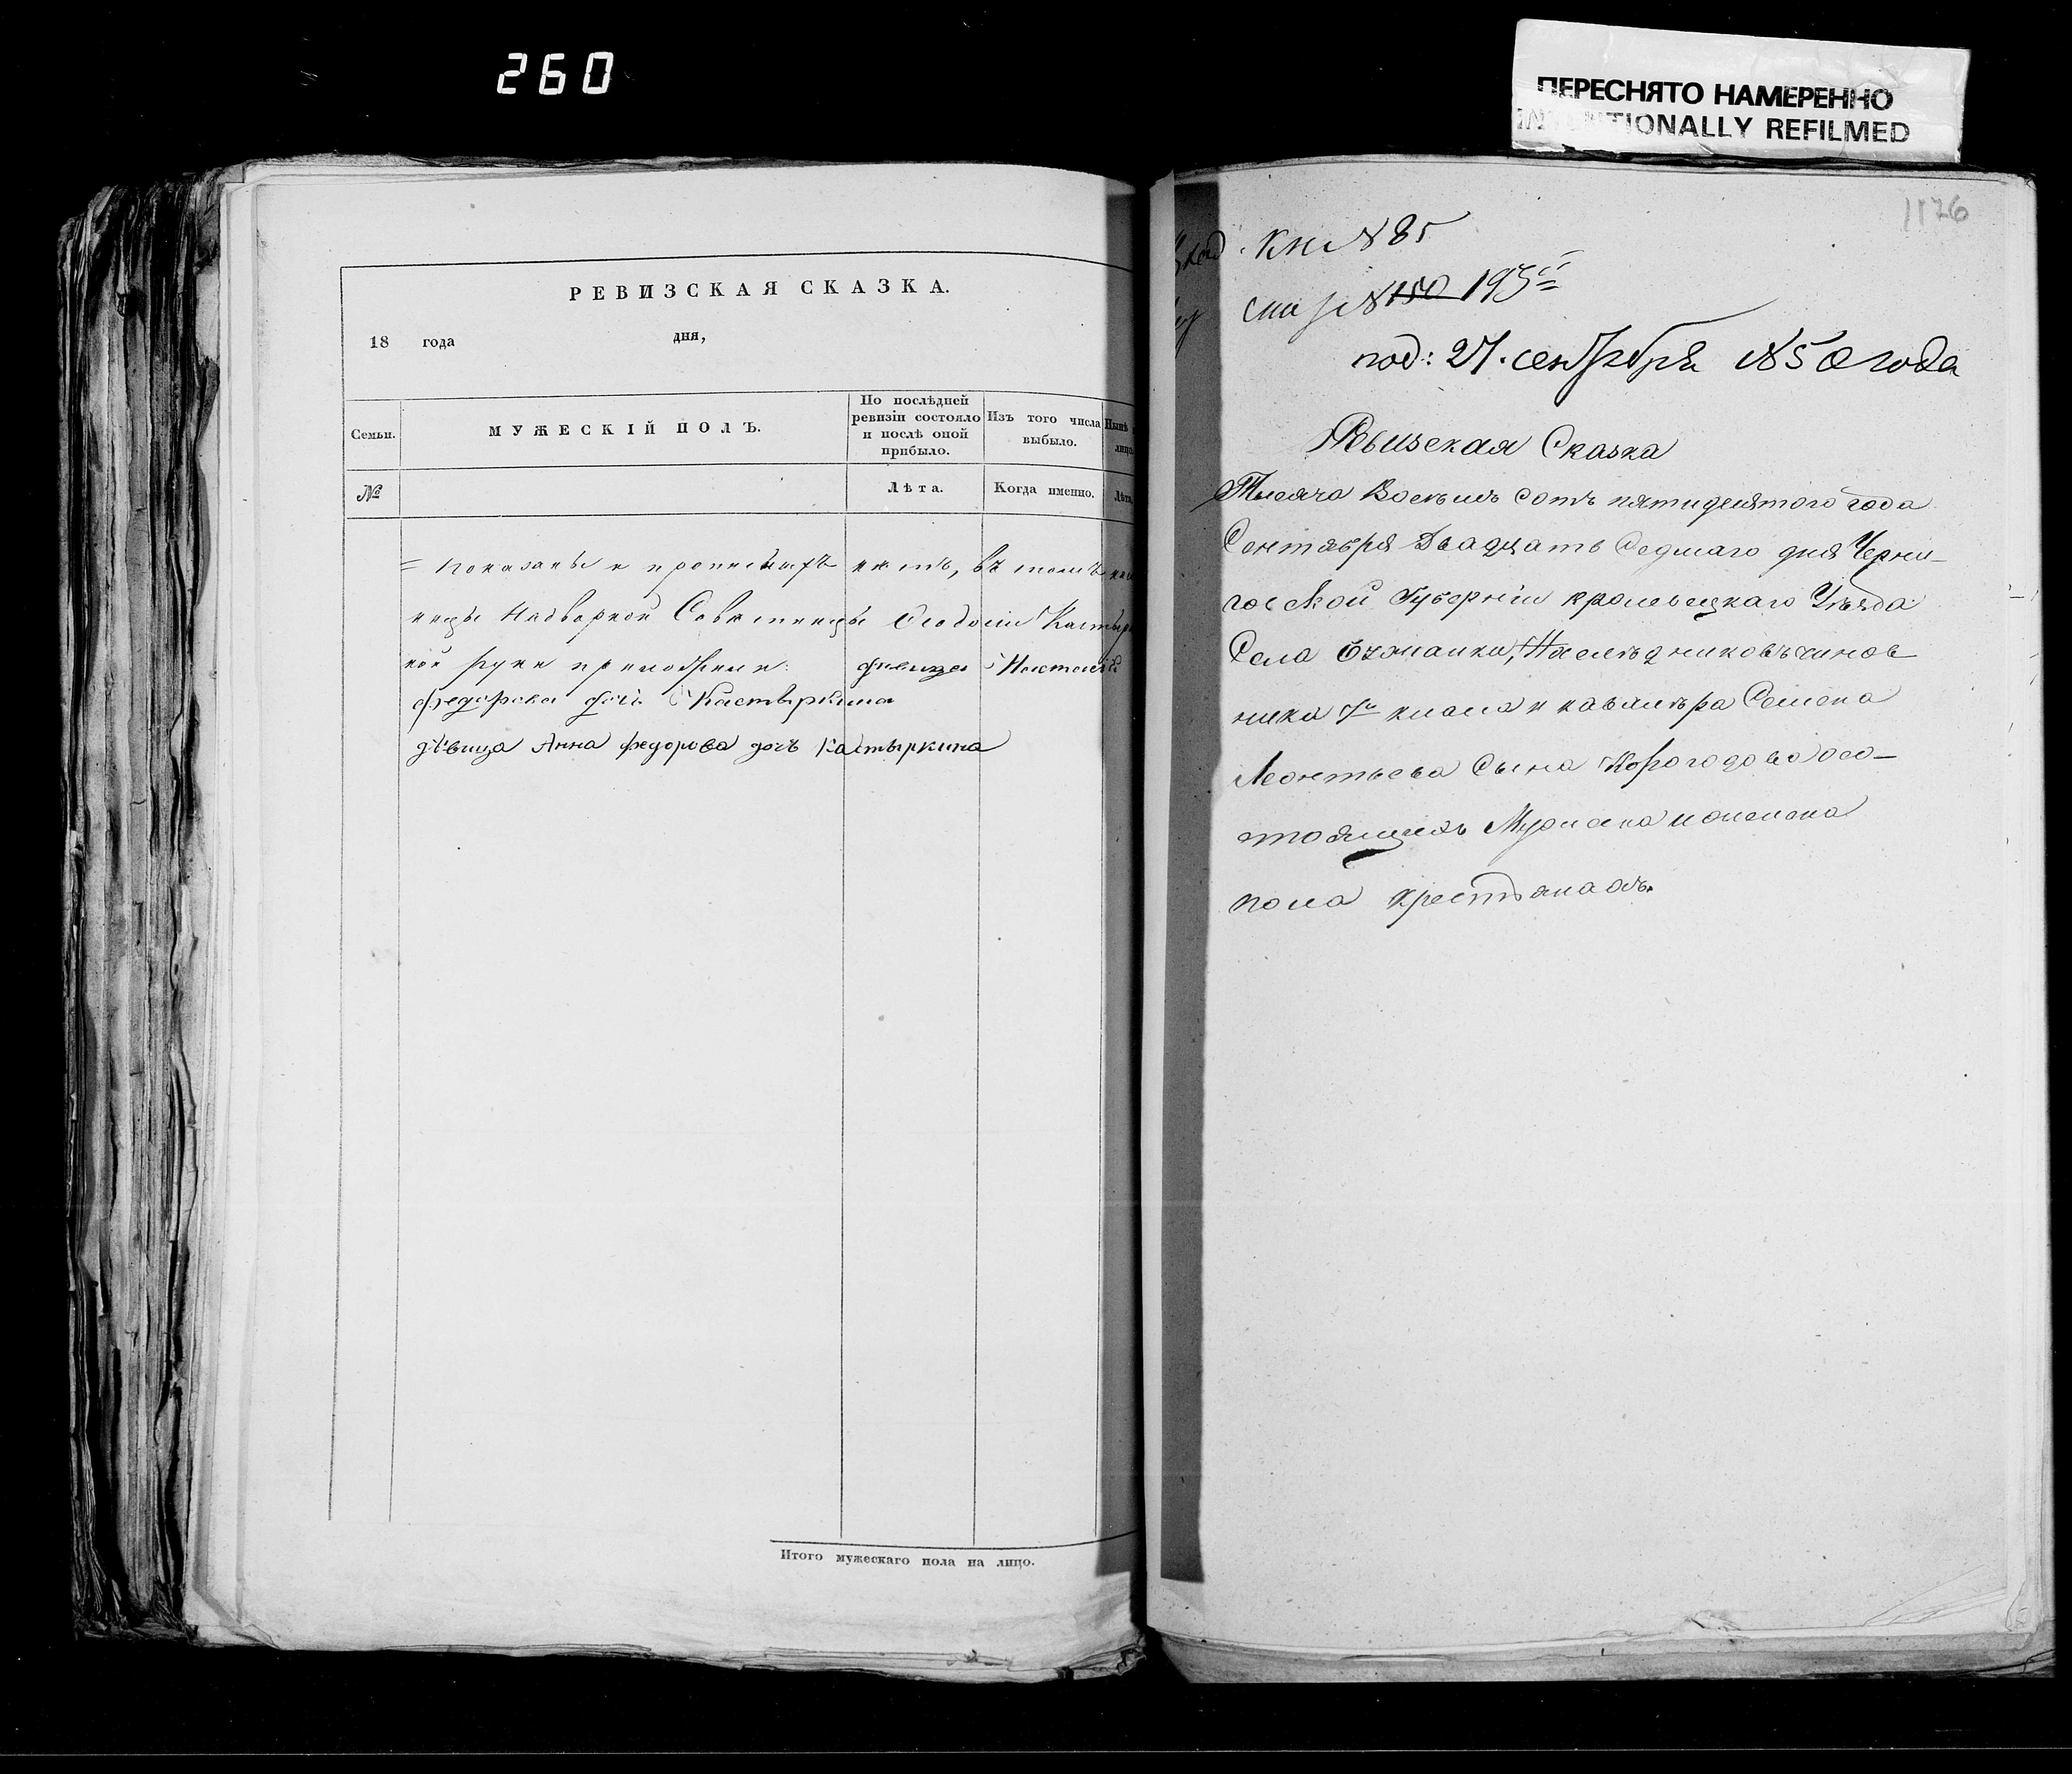 260
ПЕРЕСНЯТО НАМЕРЕННО
INTENTIONALLY REFILMED
РЕВИЗСКАЯ СКАЗКА.
18 года дня,
Семьи. МУЖЕСКІЙ ПОЛЪ. По послѣдней ревизіи состояло и послѣ оной прибыло. Изъ того числа выбыло. Нынѣ
№ Лѣта. Когда именно. Лѣта
нѣтъ, въ томъ
Надворной Совѣтницы Ѳеодосіи
руки приложили: Девица
Федорова дочь Кастыркина
дѣвица Анна Федорова дочь Кастыркина
Итого мужескаго пола на лицо.
1176
Кн: № 85
№ 150 195
под: 27. сентября 1850 года
Ревизская Сказка
Тысяча Восемь сотъ пятидесятого года
Сентября Двадцать Седмаго дня Черни-
говской Губерніи кролевецкаго Уѣзда
Села Наследниковъ чинов
ника класа и кавалѣра Семена
Леонтьева Сына Корогодова осо-
стоящихъ Мужеска и женска
пола крестьянахъ.